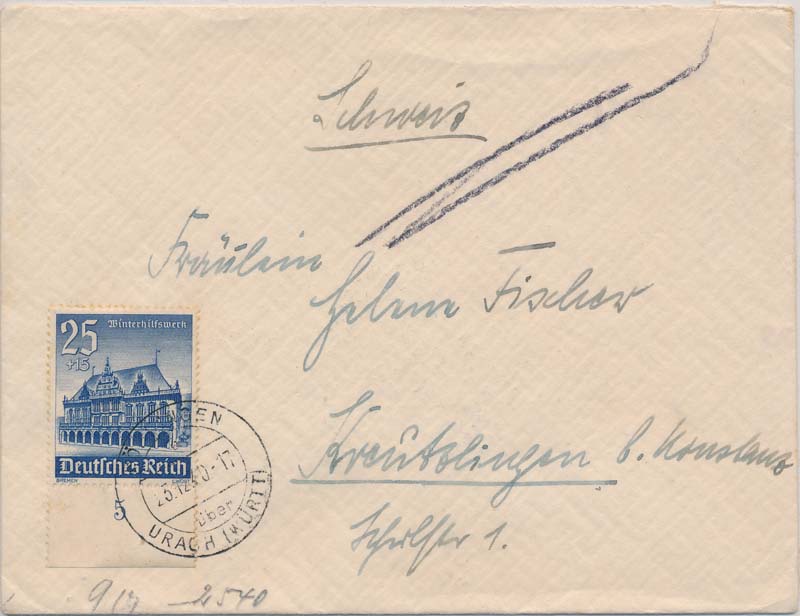 Schweiz
Fräulein
Helene Fischer
Kreutzlingen b. Konstanz
Schulstr 1.
25 Winterhilfswerk
+15
Deutsches Reich
BREMEN
INGEN
25.12.40-17
über
URACH (WÜRTT)
5
2540